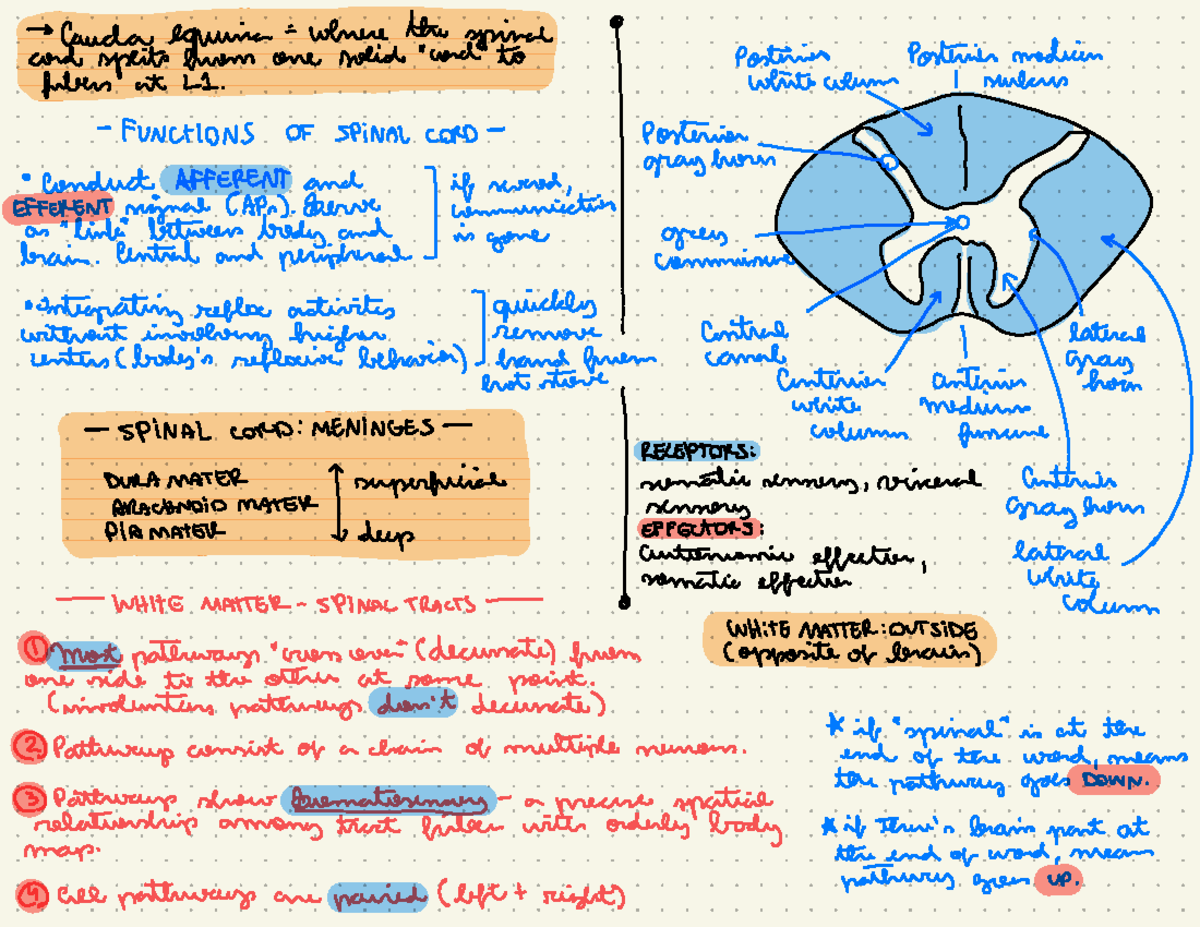 → Cauda equina = where the spinal
cord splits from one solid "cord" to
fibers at L1.
- FUNCTIONS OF SPINAL CORD -
• Conduct AFFERENT and
EFFERENT signal (APs). Serve
as "link" between body and
brain. Central and peripheral
if severed,
communication
is gone
• Integrating reflex activities
without involving higher
centers (body's reflexive behavior)
quickly
remove
hand from
hot stove
- SPINAL CORD: MENINGES -
DURA MATER
ARACHNOID MATER
PIA MATER
superficial
deep
- WHITE MATTER - SPINAL TRACTS -
① Most pathways "cross over" (decussate) from
one side to the other at some point.
(involuntary pathways don't decussate)
② Pathways consist of a chain of multiple neurons.
③ Pathways show - a precise spatial
relationship among tract fibers with orderly body
map.
④ All pathways are paired (left + right)
Posterior
white column
Posterior median
sulcus
Posterior
gray horn
gray
commissure
Central
canal
Anterior
white
column
anterior
median
fissure
lateral
gray
horn
Anterior
gray horn
lateral
white
column
RECEPTORS:
somatic sensory, visceral
sensory
EFFECTORS:
Autonomic effector,
somatic effector
WHITE MATTER: OUTSIDE
(opposite of brain)
* if "spinal" is at the
end of the word, means
the pathway goes DOWN.
* if there's brain part at
the end of word, means
pathway goes UP.